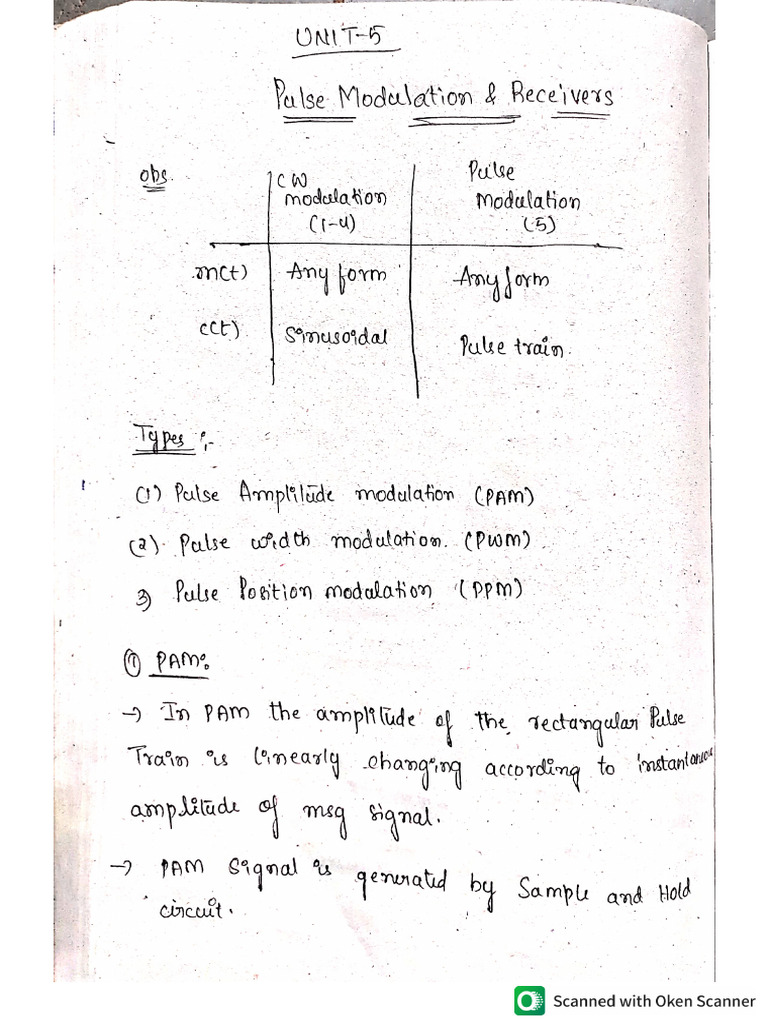 UNIT-5
Pulse Modulation & Receivers
obs
CW modulation (1-4)
Pulse Modulation (5)
m(t) Any form Any form
c(t) Sinusoidal Pulse train.
Types :-
(1) Pulse Amplitude modulation (PAM)
(2). Pulse width modulation. (PWM)
3) Pulse Position modulation (PPM)
① PAM:
→ In PAM the amplitude of the rectangular Pulse
Train is linearly changing according to instantaneous
amplitude of msg signal.
→ PAM Signal is generated by Sample and Hold
circuit.
Scanned with Oken Scanner